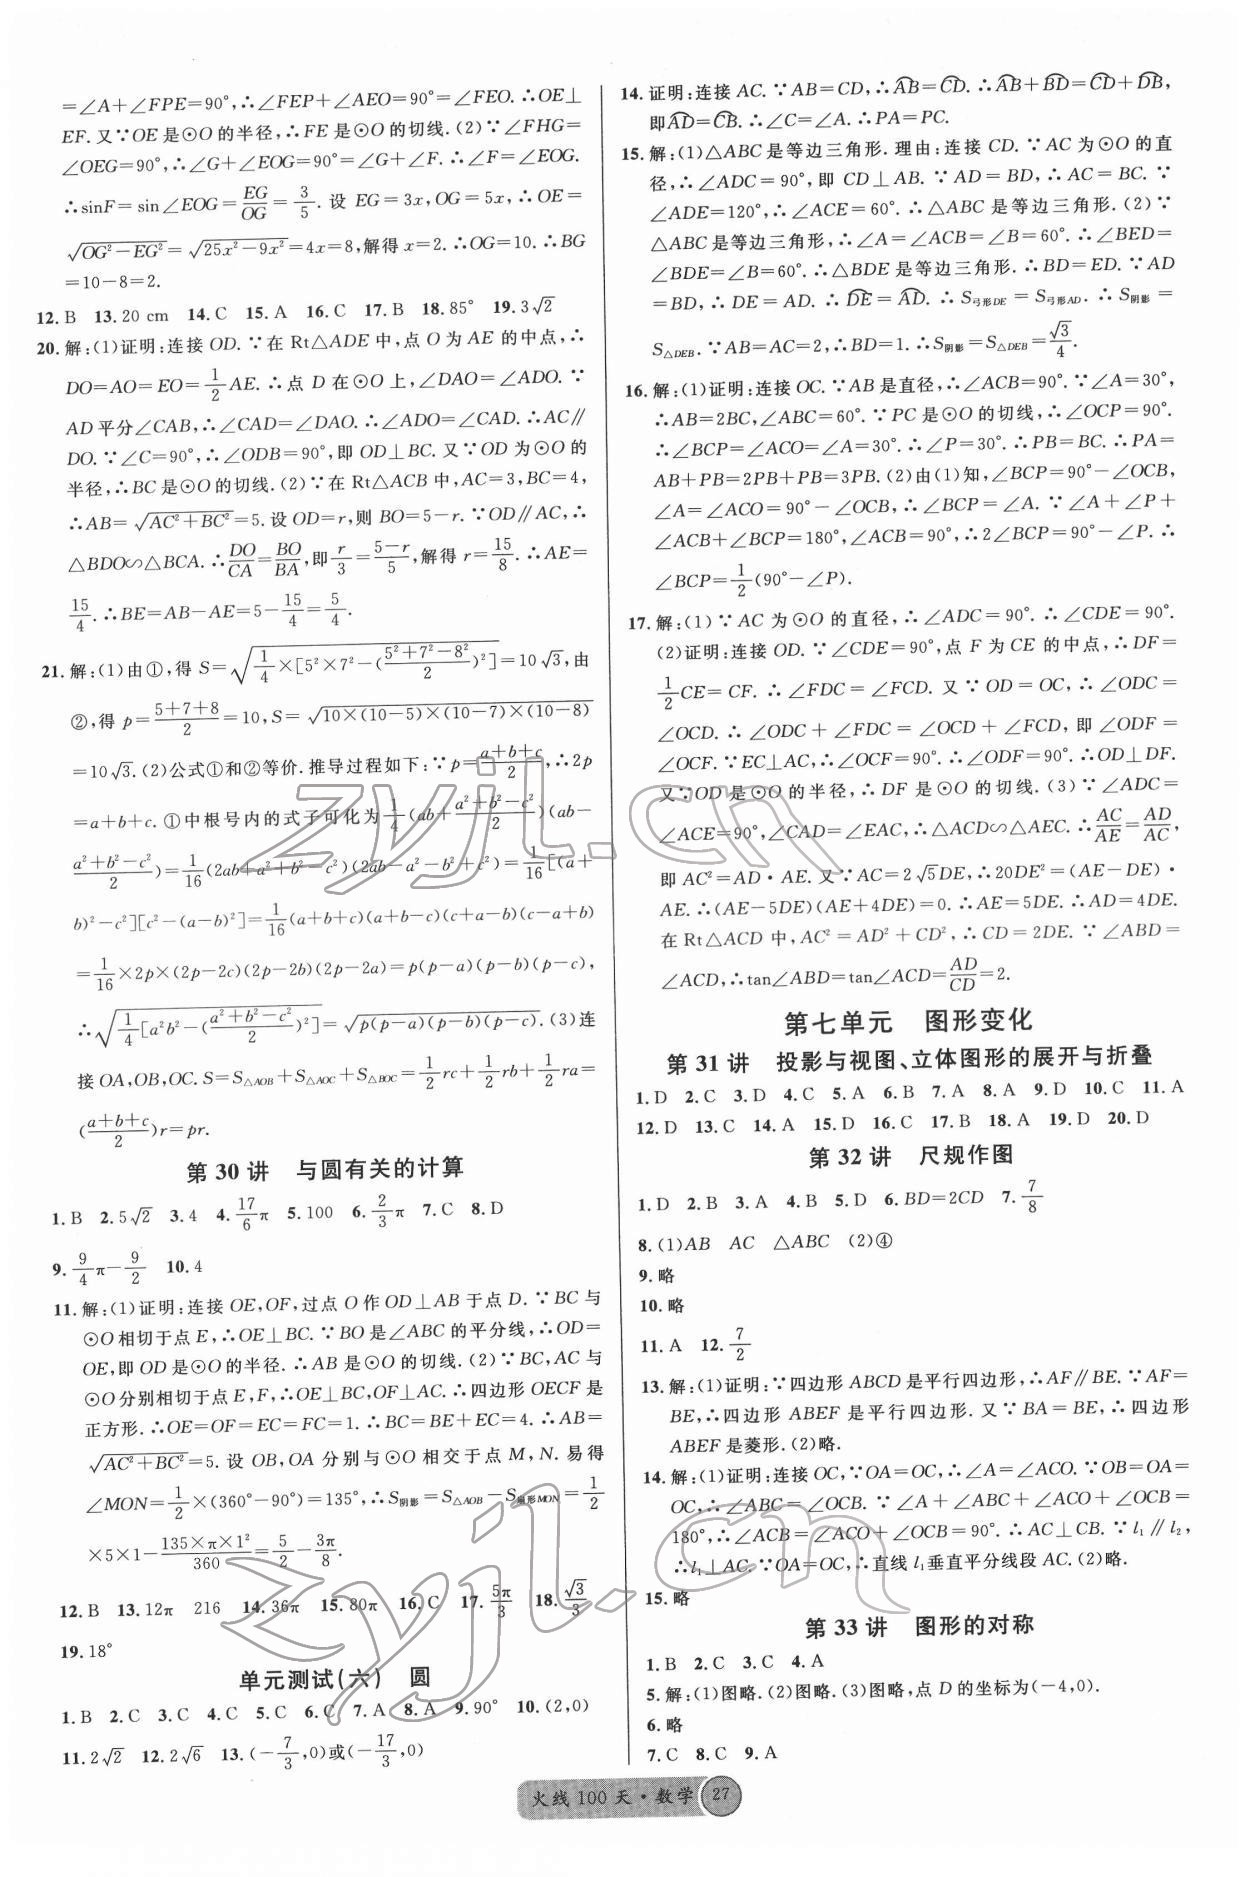 =∠A+∠FPE=90°,∴∠FEP+∠AEO=90°=∠FEO.∴OE⊥
EF.又∵OE是⊙O的半径,∴FE是⊙O的切线.(2)∵∠FHG=
∠OEG=90°,∴∠G+∠EOG=90°=∠G+∠F.∴∠F=∠EOG.
∴sinF=sin∠EOG=EG/OG=3/5.设 EG=3x,OG=5x,∴OE=
√(OG²-EG²)=√(25x²-9x²)=4x=8,解得x=2.∴OG=10.∴BG
=10-8=2.
12.B 13.20 cm 14.C 15.A 16.C 17.B 18.85° 19.3√2
20.解:(1)证明:连接OD.∵在Rt△ADE中,点O为AE的中点,∴
DO=AO=EO=1/2AE.∴点D在⊙O上,∠DAO=∠ADO.∵
AD平分∠CAB,∴∠CAD=∠DAO.∴∠ADO=∠CAD.∴AC∥
DO.∵∠C=90°,∴∠ODB=90°,即OD⊥BC.又∵OD为⊙O的
半径,∴BC是⊙O的切线.(2)∵在Rt△ACB中,AC=3,BC=4,
∴AB=√(AC²+BC²)=5.设OD=r,则BO=5-r.∵OD∥AC,∴
△BDO∽△BCA.∴DO/CA=BO/BA,即r/3=(5-r)/5,解得r=15/8.∴AE=
15/4.∴BE=AB-AE=5-15/4=5/4.
21.解:(1)由①,得S=√(1/4×[5²×7²-((5²+7²-8²)/2)²])=10√3,由
②,得p=(5+7+8)/2=10,S=√(10×(10-5)×(10-7)×(10-8))
=10√3.(2)公式①和②等价.推导过程如下:∵p=(a+b+c)/2,∴2p
=a+b+c.①中根号内的式子可化为1/4(ab+(a²+b²-c²)/2)(ab-
(a²+b²-c²)/2)=1/16(2ab+a²+b²-c²)(2ab-a²-b²+c²)=1/16[(a+
b)²-c²][c²-(a-b)²]=1/16(a+b+c)(a+b-c)(c+a-b)(c-a+b)
=1/16×2p×(2p-2c)(2p-2b)(2p-2a)=p(p-a)(p-b)(p-c),
∴√(1/4[a²b²-((a²+b²-c²)/2)²])=√(p(p-a)(p-b)(p-c)).(3)连
接OA,OB,OC.S=S△AOB+S△AOC+S△BOC=1/2rc+1/2rb+1/2ra=
((a+b+c)/2)r=pr.
第30讲 与圆有关的计算
1.B 2.5√2 3.4 4.17/6π 5.100 6.2/3π 7.C 8.D
9.9/4π-9/2 10.4
11.解:(1)证明:连接OE,OF,过点O作OD⊥AB于点D.∵BC与
⊙O相切于点E,∴OE⊥BC.∵BO是∠ABC的平分线,∴OD=
OE,即OD是⊙O的半径.∴AB是⊙O的切线.(2)∵BC,AC与
⊙O分别相切于点E,F,∴OE⊥BC,OF⊥AC.∴四边形OECF是
正方形.∴OE=OF=EC=FC=1.∴BC=BE+EC=4.∴AB=
√(AC²+BC²)=5.设OB,OA分别与⊙O相交于点M,N.易得
∠MON=1/2×(360°-90°)=135°,∴S阴影=S△AOB-S扇形MON=1/2
×5×1-(135×π×1²)/360=5/2-3π/8.
12.B 13.12π 216 14.36π 15.80π 16.C 17.5π/3 18.√3/3
19.18°
单元测试(六) 圆
1.B 2.C 3.C 4.C 5.C 6.C 7.A 8.A 9.90° 10.(2,0)
11.2√2 12.2√6 13.(-7/3,0)或(-17/3,0)
14.证明:连接AC.∵AB=CD,∴A͡B=C͡D.∴A͡B+B͡D=C͡D+D͡B,
即A͡D=C͡B.∴∠C=∠A.∴PA=PC.
15.解:(1)△ABC是等边三角形.理由:连接CD.∵AC为⊙O的直
径,∴∠ADC=90°,即CD⊥AB.∵AD=BD,∴AC=BC.∵
∠ADE=120°,∴∠ACE=60°.∴△ABC是等边三角形.(2)∵
△ABC是等边三角形,∴∠A=∠ACB=∠B=60°.∴∠BED=
∠BDE=∠B=60°.∴△BDE是等边三角形.∴BD=ED.∵AD
=BD,∴DE=AD.∴D͡E=A͡D.∴S弓形DE=S弓形AD.∴S阴影=
S△DEB.∵AB=AC=2,∴BD=1.∴S阴影=S△DEB=√3/4.
16.解:(1)证明:连接OC.∵AB是直径,∴∠ACB=90°.∵∠A=30°,
∴AB=2BC,∠ABC=60°.∵PC是⊙O的切线,∴∠OCP=90°.
∴∠BCP=∠ACO=∠A=30°.∴∠P=30°.∴PB=BC.∴PA=
AB+PB=2PB+PB=3PB.(2)由(1)知,∠BCP=90°-∠OCB,
∠A=∠ACO=90°-∠OCB,∴∠BCP=∠A.∵∠A+∠P+
∠ACB+∠BCP=180°,∠ACB=90°,∴2∠BCP=90°-∠P.∴
∠BCP=1/2(90°-∠P).
17.解:(1)∵AC为⊙O的直径,∴∠ADC=90°.∴∠CDE=90°.
(2)证明:连接OD.∵∠CDE=90°,点F为CE的中点,∴DF=
1/2CE=CF.∴∠FDC=∠FCD.又∵OD=OC,∴∠ODC=
∠OCD.∴∠ODC+∠FDC=∠OCD+∠FCD,即∠ODF=
∠OCF.∵EC⊥AC,∴∠OCF=90°.∴∠ODF=90°.∴OD⊥DF.
又∵OD是⊙O的半径,∴DF是⊙O的切线.(3)∵∠ADC=
∠ACE=90°,∠CAD=∠EAC,∴△ACD∽△AEC.∴AC/AE=AD/AC,
即AC²=AD·AE.又∵AC=2√5DE,∴20DE²=(AE-DE)·
AE.∴(AE-5DE)(AE+4DE)=0.∴AE=5DE.∴AD=4DE.
在Rt△ACD中,AC²=AD²+CD²,∴CD=2DE.∵∠ABD=
∠ACD,∴tan∠ABD=tan∠ACD=AD/CD=2.
第七单元 图形变化
第31讲 投影与视图、立体图形的展开与折叠
1.D 2.C 3.D 4.C 5.A 6.B 7.A 8.A 9.D 10.C 11.A
12.D 13.C 14.A 15.D 16.C 17.B 18.A 19.D 20.D
第32讲 尺规作图
1.D 2.B 3.A 4.B 5.D 6.BD=2CD 7.7/8
8.(1)AB AC △ABC (2)④
9.略
10.略
11.A 12.7/2
13.解:(1)证明:∵四边形ABCD是平行四边形,∴AF∥BE.∵AF=
BE,∴四边形ABEF是平行四边形.又∵BA=BE,∴四边形
ABEF是菱形.(2)略.
14.解:(1)证明:连接OC,∵OA=OC,∴∠A=∠ACO.∵OB=OA=
OC,∴∠ABC=∠OCB.∵∠A+∠ABC+∠ACO+∠OCB=
180°,∴∠ACB=∠ACO+∠OCB=90°.∴AC⊥CB.∵l₁∥l₂,
∴l₁⊥AC.∵OA=OC,∴直线l₁垂直平分线段AC.(2)略.
15.略
第33讲 图形的对称
1.B 2.C 3.C 4.A
5.解:(1)图略.(2)图略.(3)图略,点D的坐标为(-4,0).
6.略
7.C 8.C 9.A
火线100天·数学 27
zyjl.cn
zyjl.cn